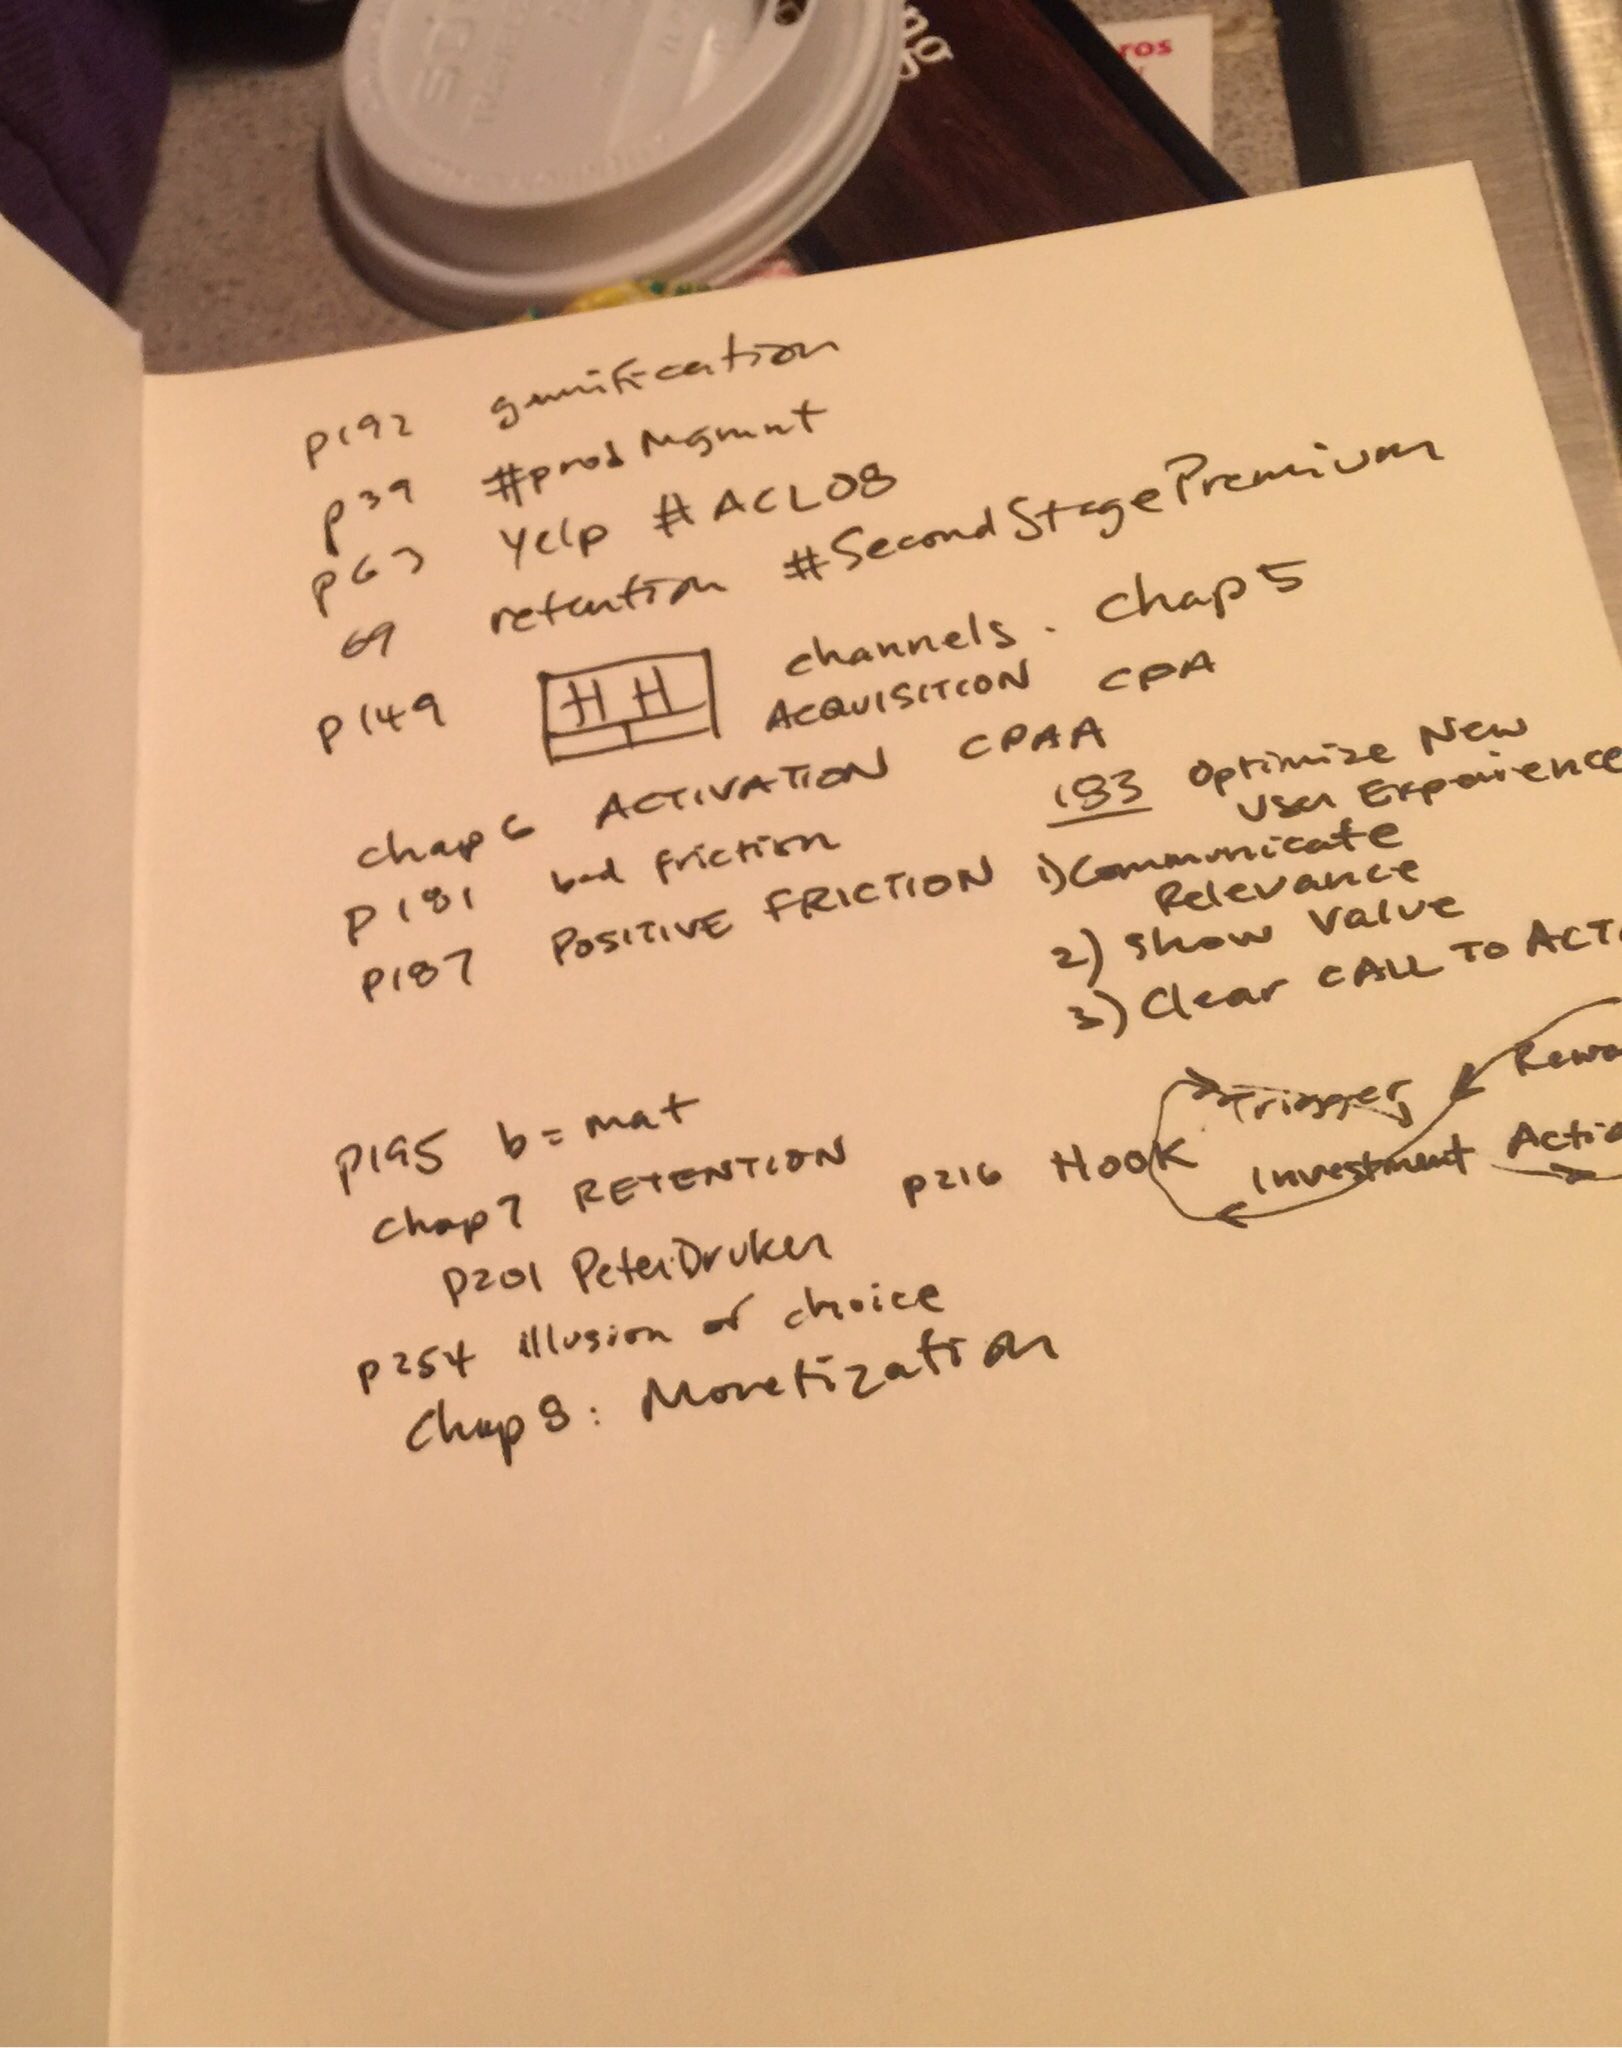 ng
ros
p192 gamification
p39 #prodMgmnt
p63 Yelp #ACL08
69 retention #SecondStagePremium
p149 HH channels. chap 5
ACQUISITION CPA
chap 6 ACTIVATION CPAA
p181 bad friction
p187 POSITIVE FRICTION
183 Optimize New
User Experience
1) Communicate
Relevance
2) Show Value
3) Clear CALL TO ACTI
p195 b = mat
chap 7 RETENTION
p216 HOOK Trigger
Investment Actio
Rewa
p201 Peter Druker
p254 illusion of choice
Chap 8: Monetization